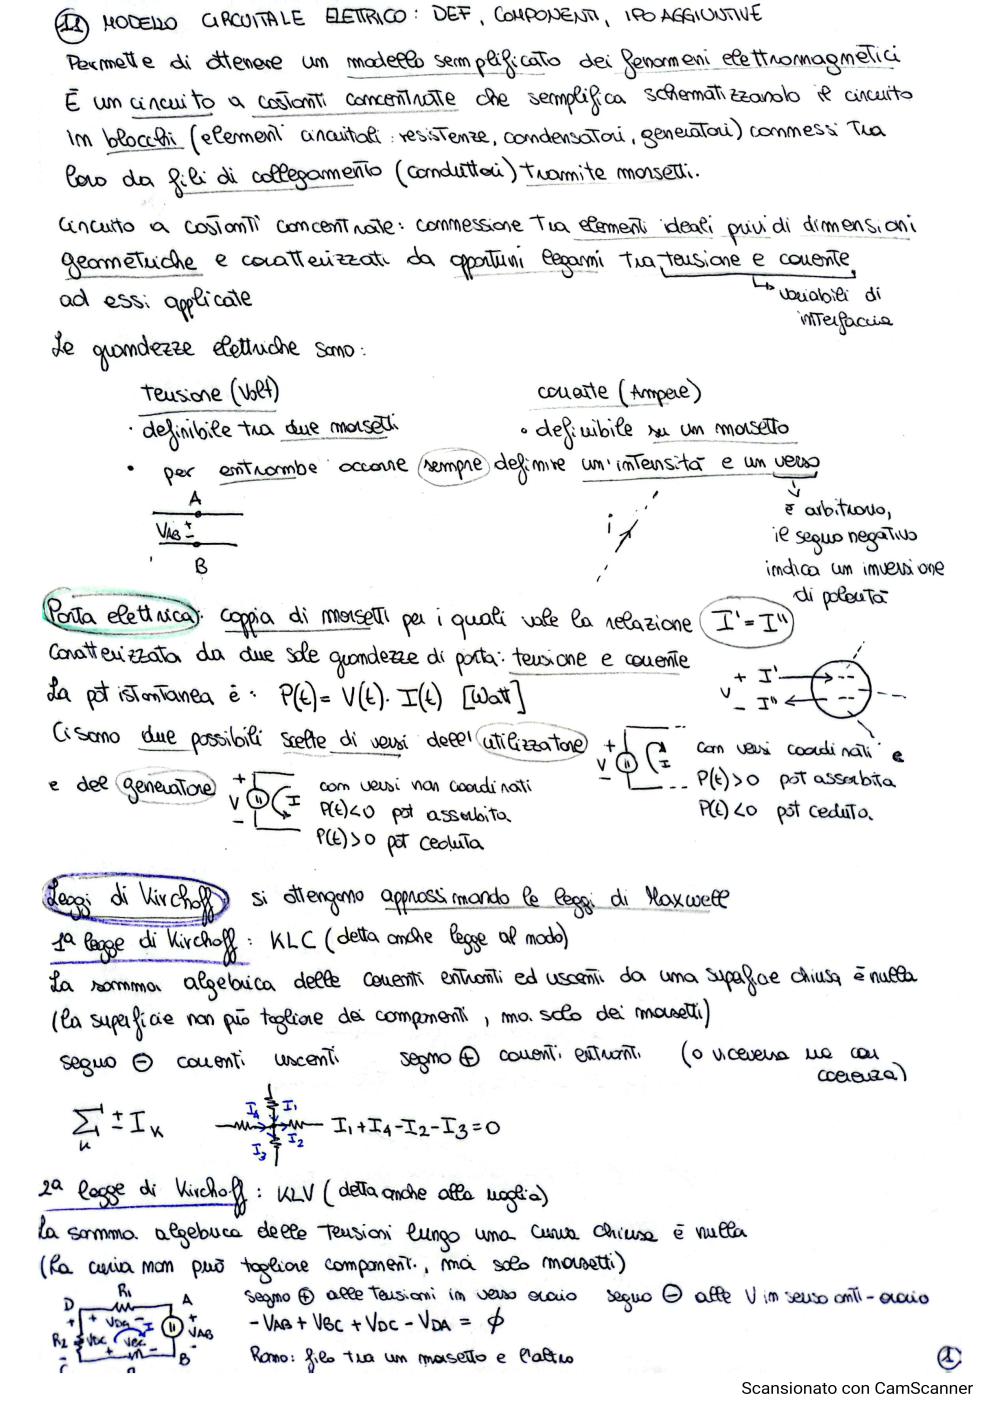 11 MODELLO CIRCUITALE ELETTRICO: DEF, COMPONENTI, IPO AGGIUNTIVE
Permette di ottenere un modello semplificato dei fenomeni elettromagnetici
È un circuito a costanti concentrate che semplifica schematizzando il circuito
in blocchi (elementi circuitali: resistenze, condensatori, generatori) connessi tra
loro da fili di collegamento (conduttori) tramite morsetti.
Circuito a costanti concentrate: connessione tra elementi ideali privi di dimensioni
geometriche e caratterizzati da opportuni legami tra tensione e corrente,
ad essi applicate
↳ variabili di
interfaccia
Le grandezze elettriche sono:
tensione (Volt)
· definibile tra due morsetti
corrente (Ampere)
• definibile su un morsetto
• per entrambe occorre sempre definire un'intensità e un verso
A
VAB + -
B
i
è arbitrario,
il segno negativo
indica un inversione
di polarità
Porta elettrica: coppia di morsetti per i quali vale la relazione I' = I"
Caratterizzata da due sole grandezze di porta: tensione e corrente
+ I'
V
- I"
La pot istantanea è: P(t) = V(t). I(t) [Watt]
Ci sono due possibili scelte di versi dell' utilizzatore
+ V - I
con versi coordinati e
P(t)>0 pot assorbita
P(t)<0 pot ceduta.
e del generatore
+ V - I
con versi non coordinati
P(t)<0 pot assorbita
P(t)>0 pot ceduta
Leggi di Kirchoff si ottengono approssimando le leggi di Maxwell
1ª legge di Kirchoff: KLC (detta anche legge al nodo)
La somma algebrica delle correnti entranti ed uscenti da una superficie chiusa è nulla
(la superficie non può tagliare dei componenti, ma solo dei morsetti)
segno ⊖ correnti uscenti segno ⊕ correnti entranti (o viceversa ma con
coerenza)
∑ ± IK
K
I4 I1
I3 I2
I1+I4-I2-I3=0
2ª legge di Kirchoff: KLV (detta anche alla maglia)
La somma algebrica delle tensioni lungo una curva chiusa è nulla
(la curva non può tagliare componenti, ma solo morsetti)
Segno ⊕ alle tensioni in verso orario segno ⊖ alle V in senso anti-orario
- VAB + VBC + VDC - VDA = ϕ
Ramo: filo tra un morsetto e l'altro
R1
D A
+ VDA - I
R2 VDC VBC VAB
B
1
Scansionato con CamScanner